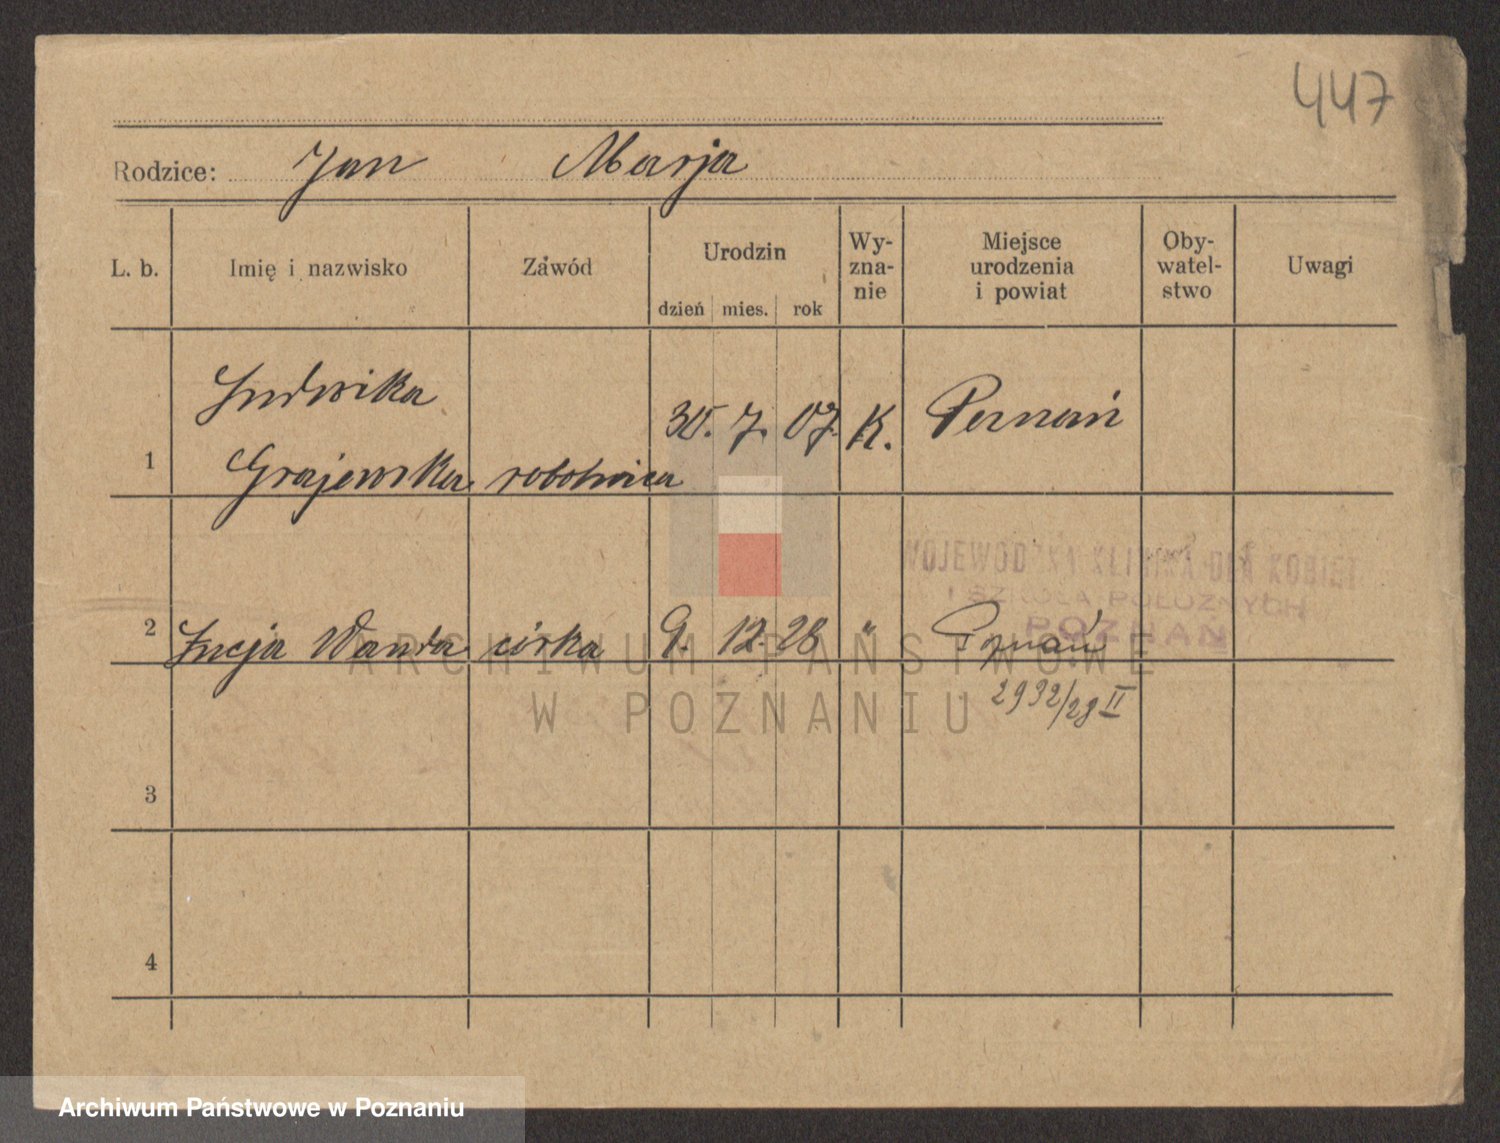 447
Rodzice: Jan Marja
L. b. Imię i nazwisko Zawód Urodzin Wy- Miejsce Oby- Uwagi
zna- urodzenia watel-
nie i powiat stwo
dzień mies. rok
Ludwika
30. 7. 07. K. Poznań
1 Grajewska robotnica
WOJEWÓDZKA KLINIKA DLA KOBIET
I SZKOŁA POŁOŻNYCH
POZNAŃ
2 Łucja Wanda córka 9. 12. 28 " Poznań
ARCHIWUM PAŃSTWOWE
W POZNANIU
2932/28 II
3
4
Archiwum Państwowe w Poznaniu